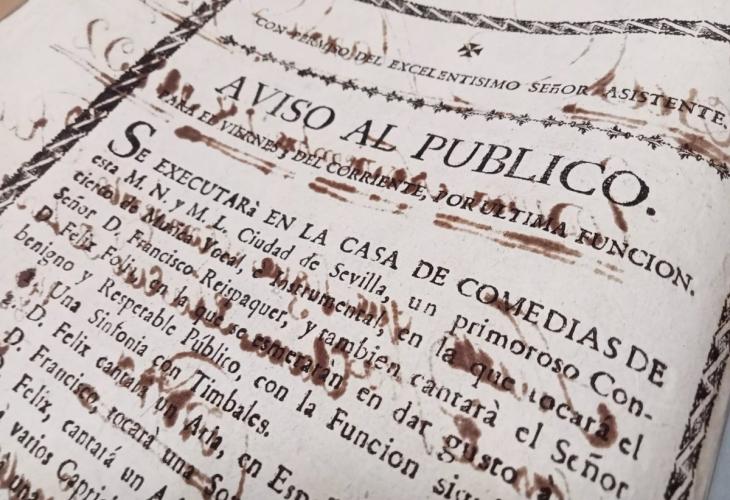 CON PERMISO DEL EXCELENTISIMO SEñOR ASISTENTE.
AVISO AL PUBLICO.
PARA EL VIERNES 3 DEL CORRIENTE, POR ULTIMA FUNCION.
SE EXECUTARà EN LA CASA DE COMEDIAS DE
esta M. N. y M. L. Ciudad de Sevilla, un primoroso Con-
cierto de Musica Vocal, è Instrumental, en la que tocarà el
Señor D. Francisco Reispaquer, y tambien cantarà el Señor
D. Felix en la que se esmeraràn en dar gusto à
benigno y Respetable Público, con la Funcion
Una Sinfonia con Timbales.
D. Felix cantarà un Aria, en
D. Francisco, tocarà una
Felix, cantarà un
varios